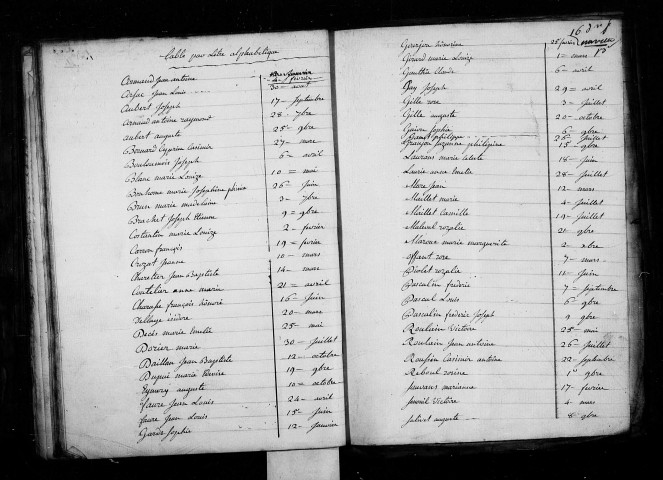 Table par Lettre alphabetique
Armand Jean antoine 4 = fevrier
Jean Louis 30 = avril
Aubert Joseph 17 = Septembre
Armand antoine raymont 28 = 7bre
aubert auguste 25 = 9bre
Bernard Cyprien Casimir 27 = mars
Joseph 6 = avril
Blanc marie Louize 10 = mai
Bonhome marie Josephine 26 = Juin
Brun marie madelaine 3 = 7bre
Brachet Joseph Etienne 9 = 9bre
Costantin marie Louize 2 = fevrier
Carron françois 19 = fevrier
Crozat Jeanne 10 = mars
Charetier Jean Baptiste 14 = mars
Coutelier anne marie 21 = avril
françois honoré 16 = Juin
Dellaye isidore 20 = mars
marie Emelie 25 = mai
Dorier marie 30 = Juillet
Daillan Jean Baptiste 12 = octobre
Dupui marie 19 = 9bre
Eymery auguste 10 = octobre
faure Jean Louis 24 = avril
faure Jean Louis 15 = Juin
Sophie 12 = Janvier
16
honorine 25 fevrier
Girard marie Louize 1 = mars
Gonthie Claude 6 = avril
Guy Joseph 29 = avril
Gille rose 3 = Juillet
Gille auguste 20 = octobre
Sophie 6 = 9bre
philippe 26 = Juillet
Suzanne philipine 15 = 9bre
Laurans marie 18 = Juin
Laurie anne Emelie 28 = Juillet
More Jean 12 = mars
Maillet marie 4 = Juillet
Maillet Camille 19 = Juillet
rozalie 21 = 9bre
Maroux marie margueritte 2 = xbre
rose 7 = mars
Piolet rozalie 11 = Juin
Pascalin frederic 7 = Septembre
Pascal Louis 6 = 9bre
Pascalin frederic Joseph 9 = 9bre
Roulain Victoire 25 = mai
Roulain Jean antoine 26 = Juillet
Casimir antoine 22 = Septembre
Reboul rosine 1 = 9bre
marianne 17 = fevrier
Victoire 4 = mars
auguste 8 = 9bre